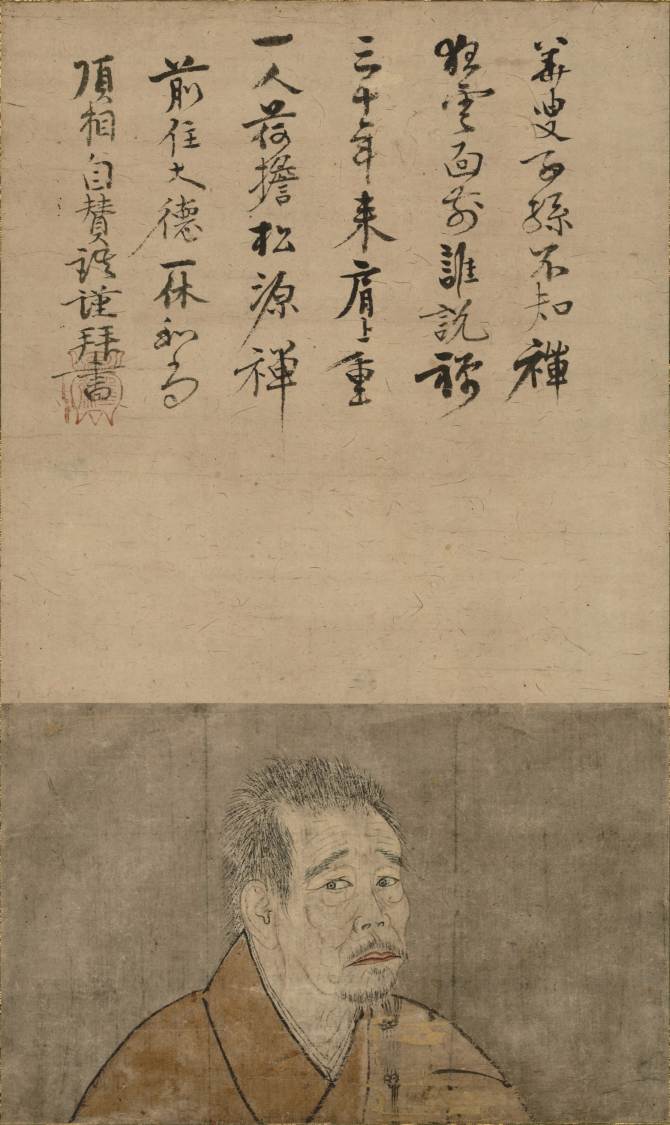 華叟子孫不知禅
狂雲面前誰説禅
三十年来肩上重
一人荷擔松源禅
前住大德一休和尚
頂相自賛 謹拝書